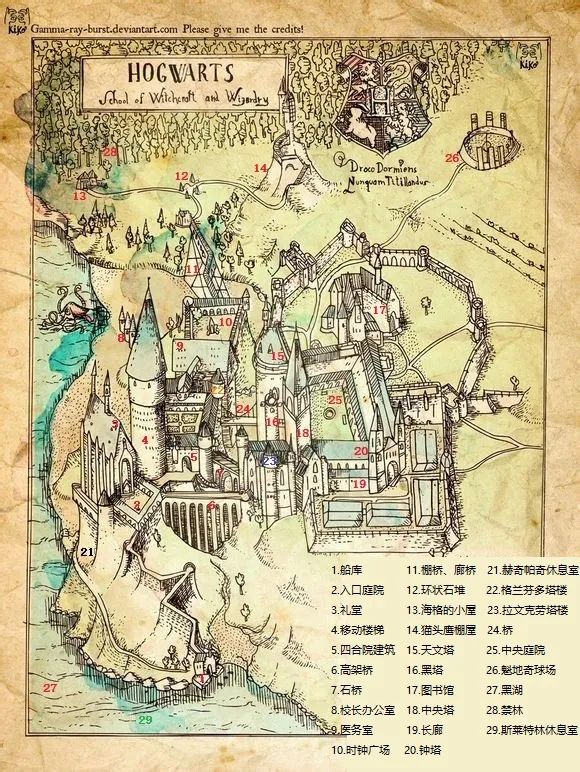 KiKo Gamma-ray-burst.deviantart.com Please give me the credits!
KiKo
HOGWARTS
School of Witchcraft and Wizardry
Draco Dormiens
Nunquam Titillandus
28
13
12
14
26
11
17
8
9
10
15
22
24
25
3
4
16
18
5
23
20
7
19
2
6
21
1
27
29
1.船库
2.入口庭院
3.礼堂
4.移动楼梯
5.四合院建筑
6.高架桥
7.石桥
8.校长办公室
9.医务室
10.时钟广场
11.棚桥、廊桥
12.环状石堆
13.海格的小屋
14.猫头鹰棚屋
15.天文塔
16.黑塔
17.图书馆
18.中央塔
19.长廊
20.钟塔
21.赫奇帕奇休息室
22.格兰芬多塔楼
23.拉文克劳塔楼
24.桥
25.中央庭院
26.魁地奇球场
27.黑湖
28.禁林
29.斯莱特林休息室